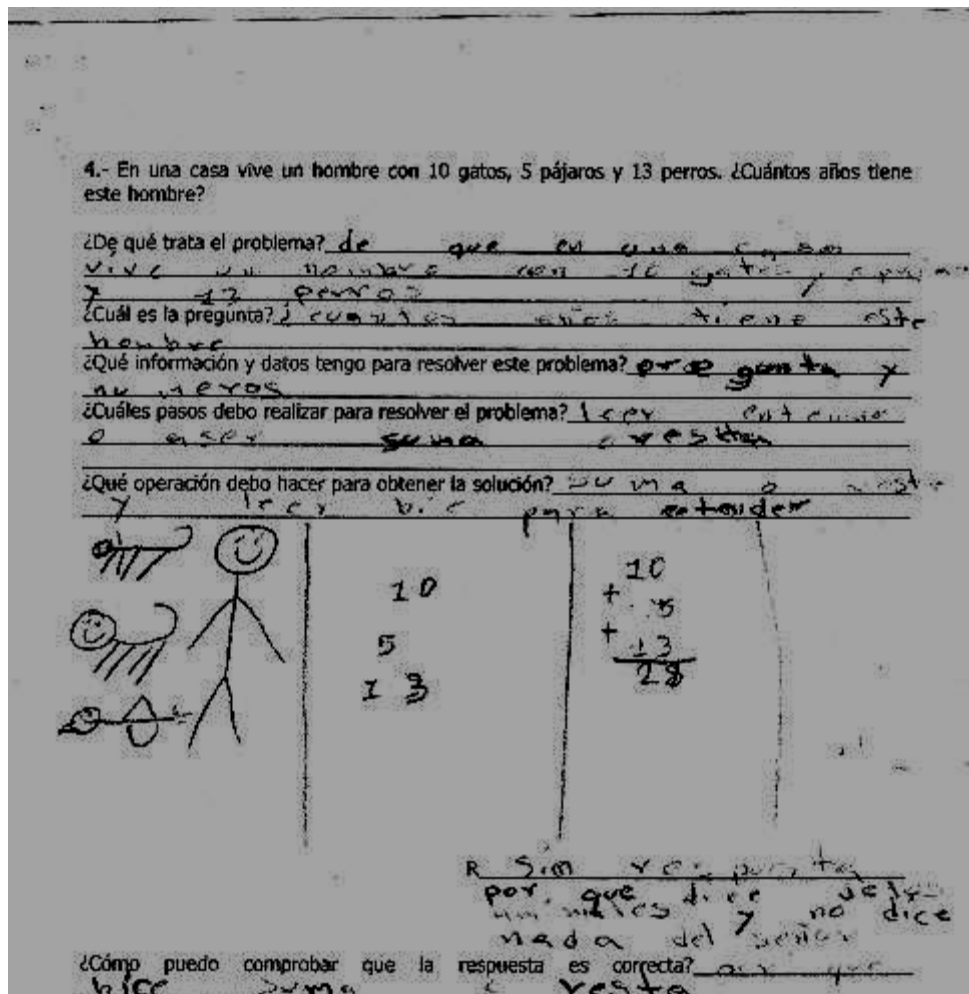 4.- En una casa vive un hombre con 10 gatos, 5 pájaros y 13 perros. ¿Cuántos años tiene
este hombre?
¿De qué trata el problema? de que en una casa
vive un hombre con 10 gatos, 5
y 13 perros
¿Cuál es la pregunta? ¿cuantos años tiene este
hombre
¿Qué información y datos tengo para resolver este problema? pregunta y
numeros
¿Cuáles pasos debo realizar para resolver el problema? leer
o aser suma o resta
¿Qué operación debo hacer para obtener la solución? suma o resta
y leer para entender
10
5
13
10
+ 5
+ 13
28
R Sin respuesta
por que dice de
animales y no dice
nada del señor
¿Cómo puedo comprobar que la respuesta es correcta?
hice suma resta